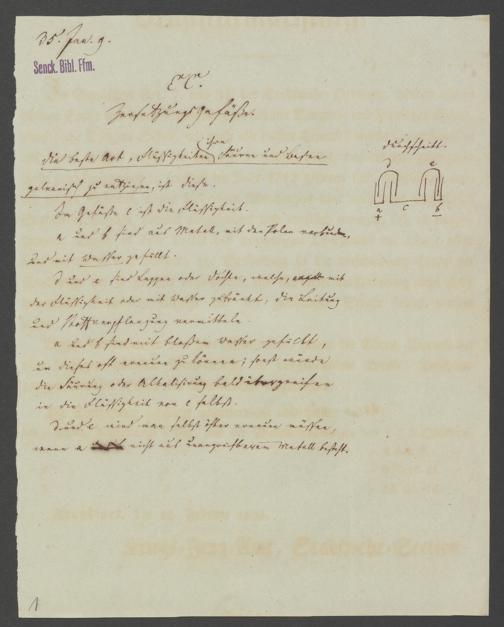 35. Jan. 9.
Senck. Bibl. Ffm.
Zersetzungs Gefäße.
Durchschnitt.
ihre
Die beste Art, Flüssigkeiten Säuren und Basen
galvanisch zu entziehen, ist diese.
d e
a c b
+ –
Im Gefäße c ist die Flüssigkeit.
a und b sind aus Metall, mit den Polen verbunden,
und mit Wasser gefüllt.
d und e sind Lappen oder Dochte, welche, mit
der Flüssigkeit oder mit Wasser getränkt, die Leitung
und Stoffverpflanzung vermitteln.
a und b sind mit bloßem Wasser gefüllt,
um dieses oft erneuen zu können; sonst würde
die Säurung oder Alkalisirung bald übergreifen
in die Flüssigkeit von c selbst.
d und e wird man selbst öfter erneuen müssen,
wenn a nicht aus unangreifbarem Metall besteht.
1